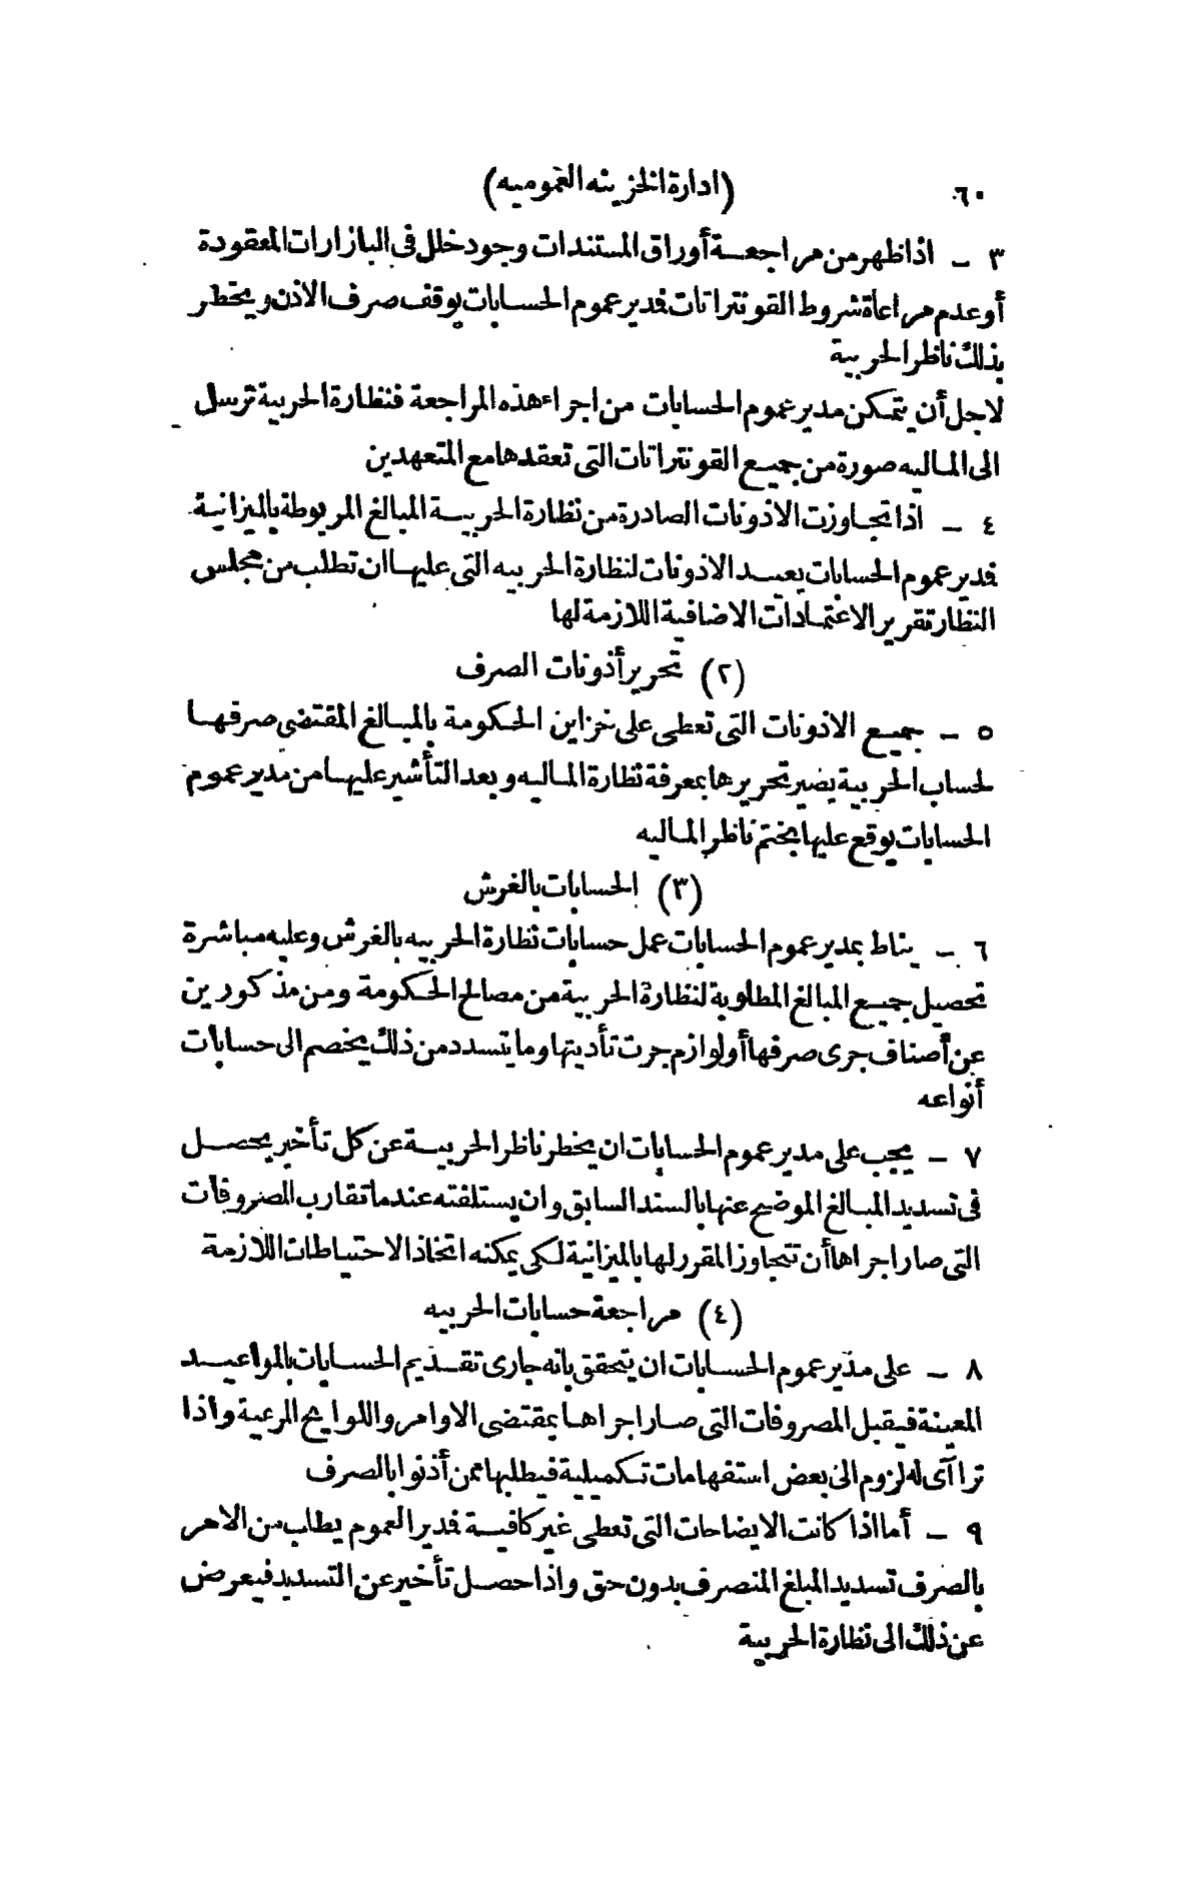 ٦٠ (ادارة الخزينه العموميه)
٣ - اذا ظهر من مراجعة أوراق المستندات وجود خلل فى البازارات المعقودة
أو عدم مراعاة شروط القونتراتات فدير عموم الحسابات يوقف صرف الاذن ويخطر
بذلك ناظر الحربية
لاجل أن يتمكن مدير عموم الحسابات من اجراء هذه المراجعة فنظارة الحربية ترسل
الى الماليه صورة من جميع القونتراتات التى تعقدها مع المتعهدين
٤ - اذا تجاوزت الاذونات الصادرة من نظارة الحربية المبالغ المربوطة بالميزانية
فدير عموم الحسابات يعيد الاذونات لنظارة الحربيه التى عليها ان تطلب من مجلس
النظار تقرير الاعتمادات الاضافية اللازمة لها
(٢) تحرير أذونات الصرف
٥ - جميع الاذونات التى تعطى على خزاين الحكومة بالمبالغ المقتضى صرفها
لحساب الحربية يصير تحريرها بمعرفة نظارة الماليه وبعد التأشير عليها من مدير عموم
الحسابات يوقع عليها بختم ناظر الماليه
(٣) الحسابات بالغرش
٦ - يناط بمدير عموم الحسابات عمل حسابات نظارة الحربيه بالغرش وعليه مباشرة
تحصيل جميع المبالغ المطلوبة لنظارة الحربية من مصالح الحكومة ومن مذكورين
عن أصناف جرى صرفها أو لوازم جرت تأديتها وما يتسدد من ذلك يخصم الى حسابات
أنواعه
٧ - يجب على مدير عموم الحسابات ان يخطر ناظر الحربية عن كل تأخير يحصل
فى تسديد المبالغ الموضح عنها بالسند السابق وان يستلفته عندما تقارب المصروفات
التى صار اجراها أن تتجاوز المقرر لها بالميزانية لكى يمكنه اتخاذ الاحتياطات اللازمة
(٤) مراجعة حسابات الحربيه
٨ - على مدير عموم الحسابات ان يتحقق بانه جارى تقديم الحسابات بالمواعيد
المعينة فيقبل المصروفات التى صار اجراها بمقتضى الاوامر واللوايح المرعية واذا
تراآى له لزوم الى بعض استفهامات تكميلية فيطلبها ممن أذنوا بالصرف
٩ - أما اذا كانت الايضاحات التى تعطى غير كافية فدير العموم يطلب من الامر
بالصرف تسديد المبلغ المنصرف بدون حق واذا حصل تأخير عن التسديد فيعرض
عن ذلك الى نظارة الحربية